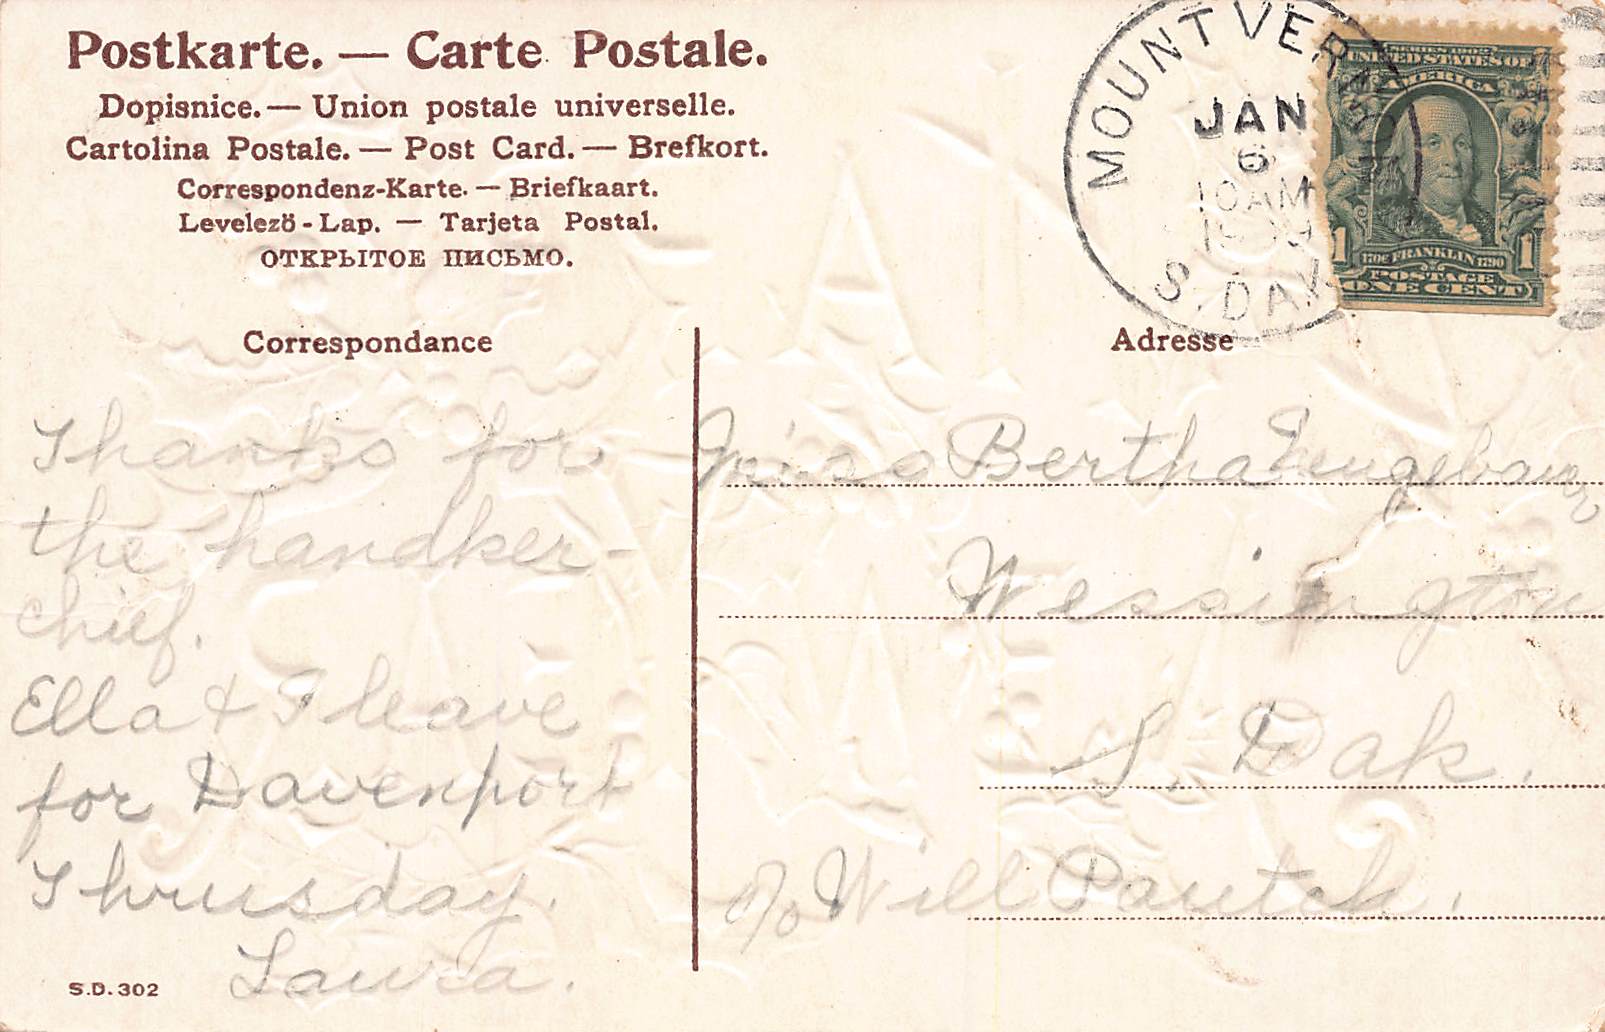 Postkarte. — Carte Postale.
Dopisnice. — Union postale universelle.
Cartolina Postale. — Post Card. — Brefkort.
Correspondenz-Karte. — Briefkaart.
Levelező - Lap. — Tarjeta Postal.
ОТКРЫТОЕ ПИСЬМО.
MOUNT VERNON
JAN
6
10 AM
S. DAK.
SERIES 1902
UNITED STATES OF
AMERICA
1 1706 FRANKLIN 1790 1
POSTAGE
ONE CENT
Correspondance
Thanks for
the handker-
chief.
Ella & I leave
for Davenport
Thursday.
Laura.
S.D. 302
Adresse
Miss Bertha
Wessington
S. Dak.
c/o Will Pautch.